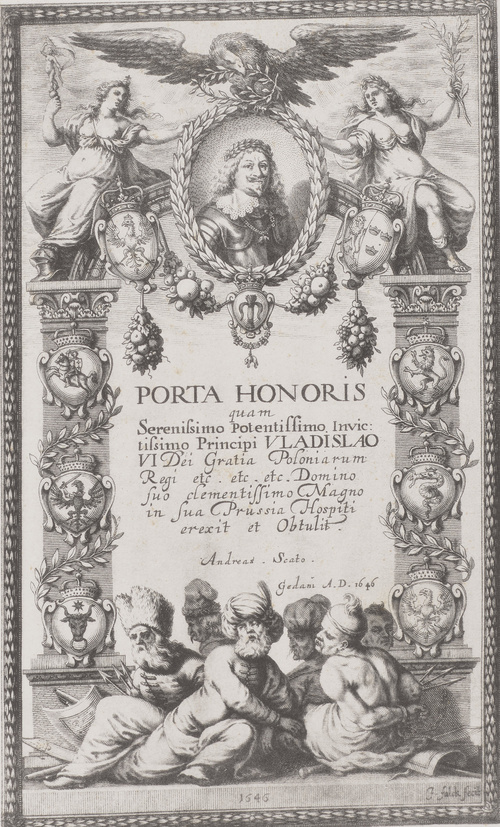 PORTA HONORIS
quam
Serenissimo Potentissimo, Invic:
tissimo Principi VLADISLAO
VI Dei Gratia Poloniarum
Regi etc. etc. etc. Domino
suo clementissimo Magno
in sua Prussia Hospiti
erexit et Obtulit.
Andreas . Scato .
Gedani A.D. 1646
1646
J. falck fecit